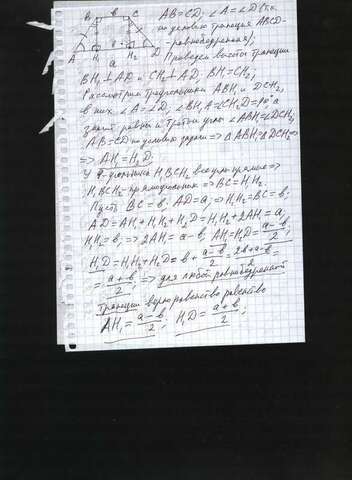 B в C
AB=CD; ∠A=∠D (т.к.
по условию трапеция ABCD-
равнобедренная);
A H₁ H₂ D
a
Проведём высоты трапеции
BH₁⊥AD и CH₂⊥AD; BH₁=CH₂;
Рассмотрим треугольники ABH₁ и DCH₂,
в них ∠A=∠D; ∠BH₁A=∠CH₂D=90°, а
значит равны и третьи углы ∠ABH₁=∠DCH₂;
AB=CD по условию задачи => △ABH₁=△DCH₂=>
=> AH₁=H₂D;
У 4-угольника H₁BCH₂ все углы прямые =>
H₁BCH₂-прямоугольник => BC=H₁H₂.
Пусть BC=в; AD=a; => H₁H₂=BC=в;
AD=AH₁+H₁H₂+H₂D=H₁H₂+2AH₁=a,
H₁H₂=в; => 2AH₁=a-в; AH₁=H₂D=(a-в)/2;
H₁D=H₁H₂+H₂D=в+(a-в)/2=(2в+a-в)/2=
=(a+в)/2; => для любой равнобедренной
трапеции верно равенство равенство
AH₁=(a-в)/2; H₁D=(a+в)/2;